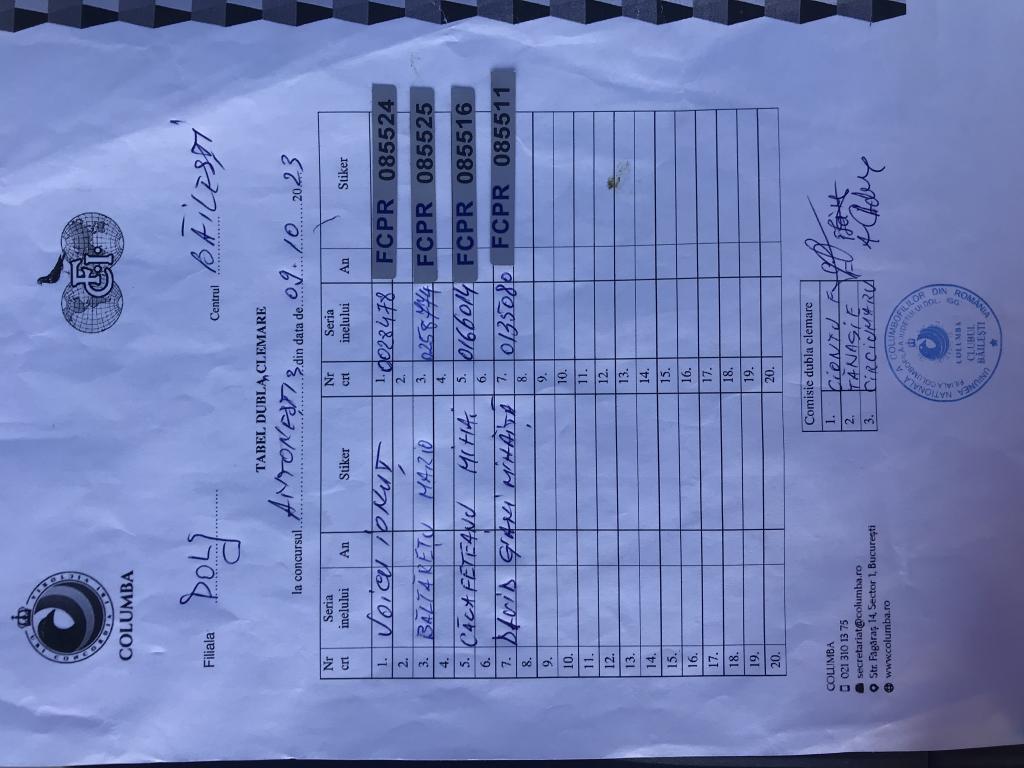 COLUMBA
FCPR
Filiala DOLJ
Centrul BĂILEȘTI
TABEL DUBLA CLEMARE
la concursul ANTONEȘTI 3 din data de 09.10 2023
Nr crt Seria inelului An Stiker Nr crt Seria inelului An Stiker
1. VOICU IONUȚ 1. 0028478 FCPR 085524
2. 2.
3. BĂLTĂREȚU MARIO 3. 0258774 FCPR 085525
4. 4.
5. CALAFETEANU MIHAI 5. 0166014 FCPR 085516
6. 6.
7. DAVID GIANI MIHĂIȚĂ 7. 0135080 FCPR 085511
8. 8.
9. 9.
10. 10.
11. 11.
12. 12.
13. 13.
14. 14.
15. 15.
16. 16.
17. 17.
18. 18.
19. 19.
20. 20.
Comisie dubla clemare
1. CIONTU F
2. TĂNASIE
3. CIRCIUMARU
COLUMBA
021 310 13 75
secretariat@columba.ro
Str. Făgăraș 14, Sector 1, București
www.columba.ro
UNIUNEA NAȚIONALĂ A COLUMBOFILILOR DIN ROMANIA
COLUMBA
CLUBUL
BĂILEȘTI